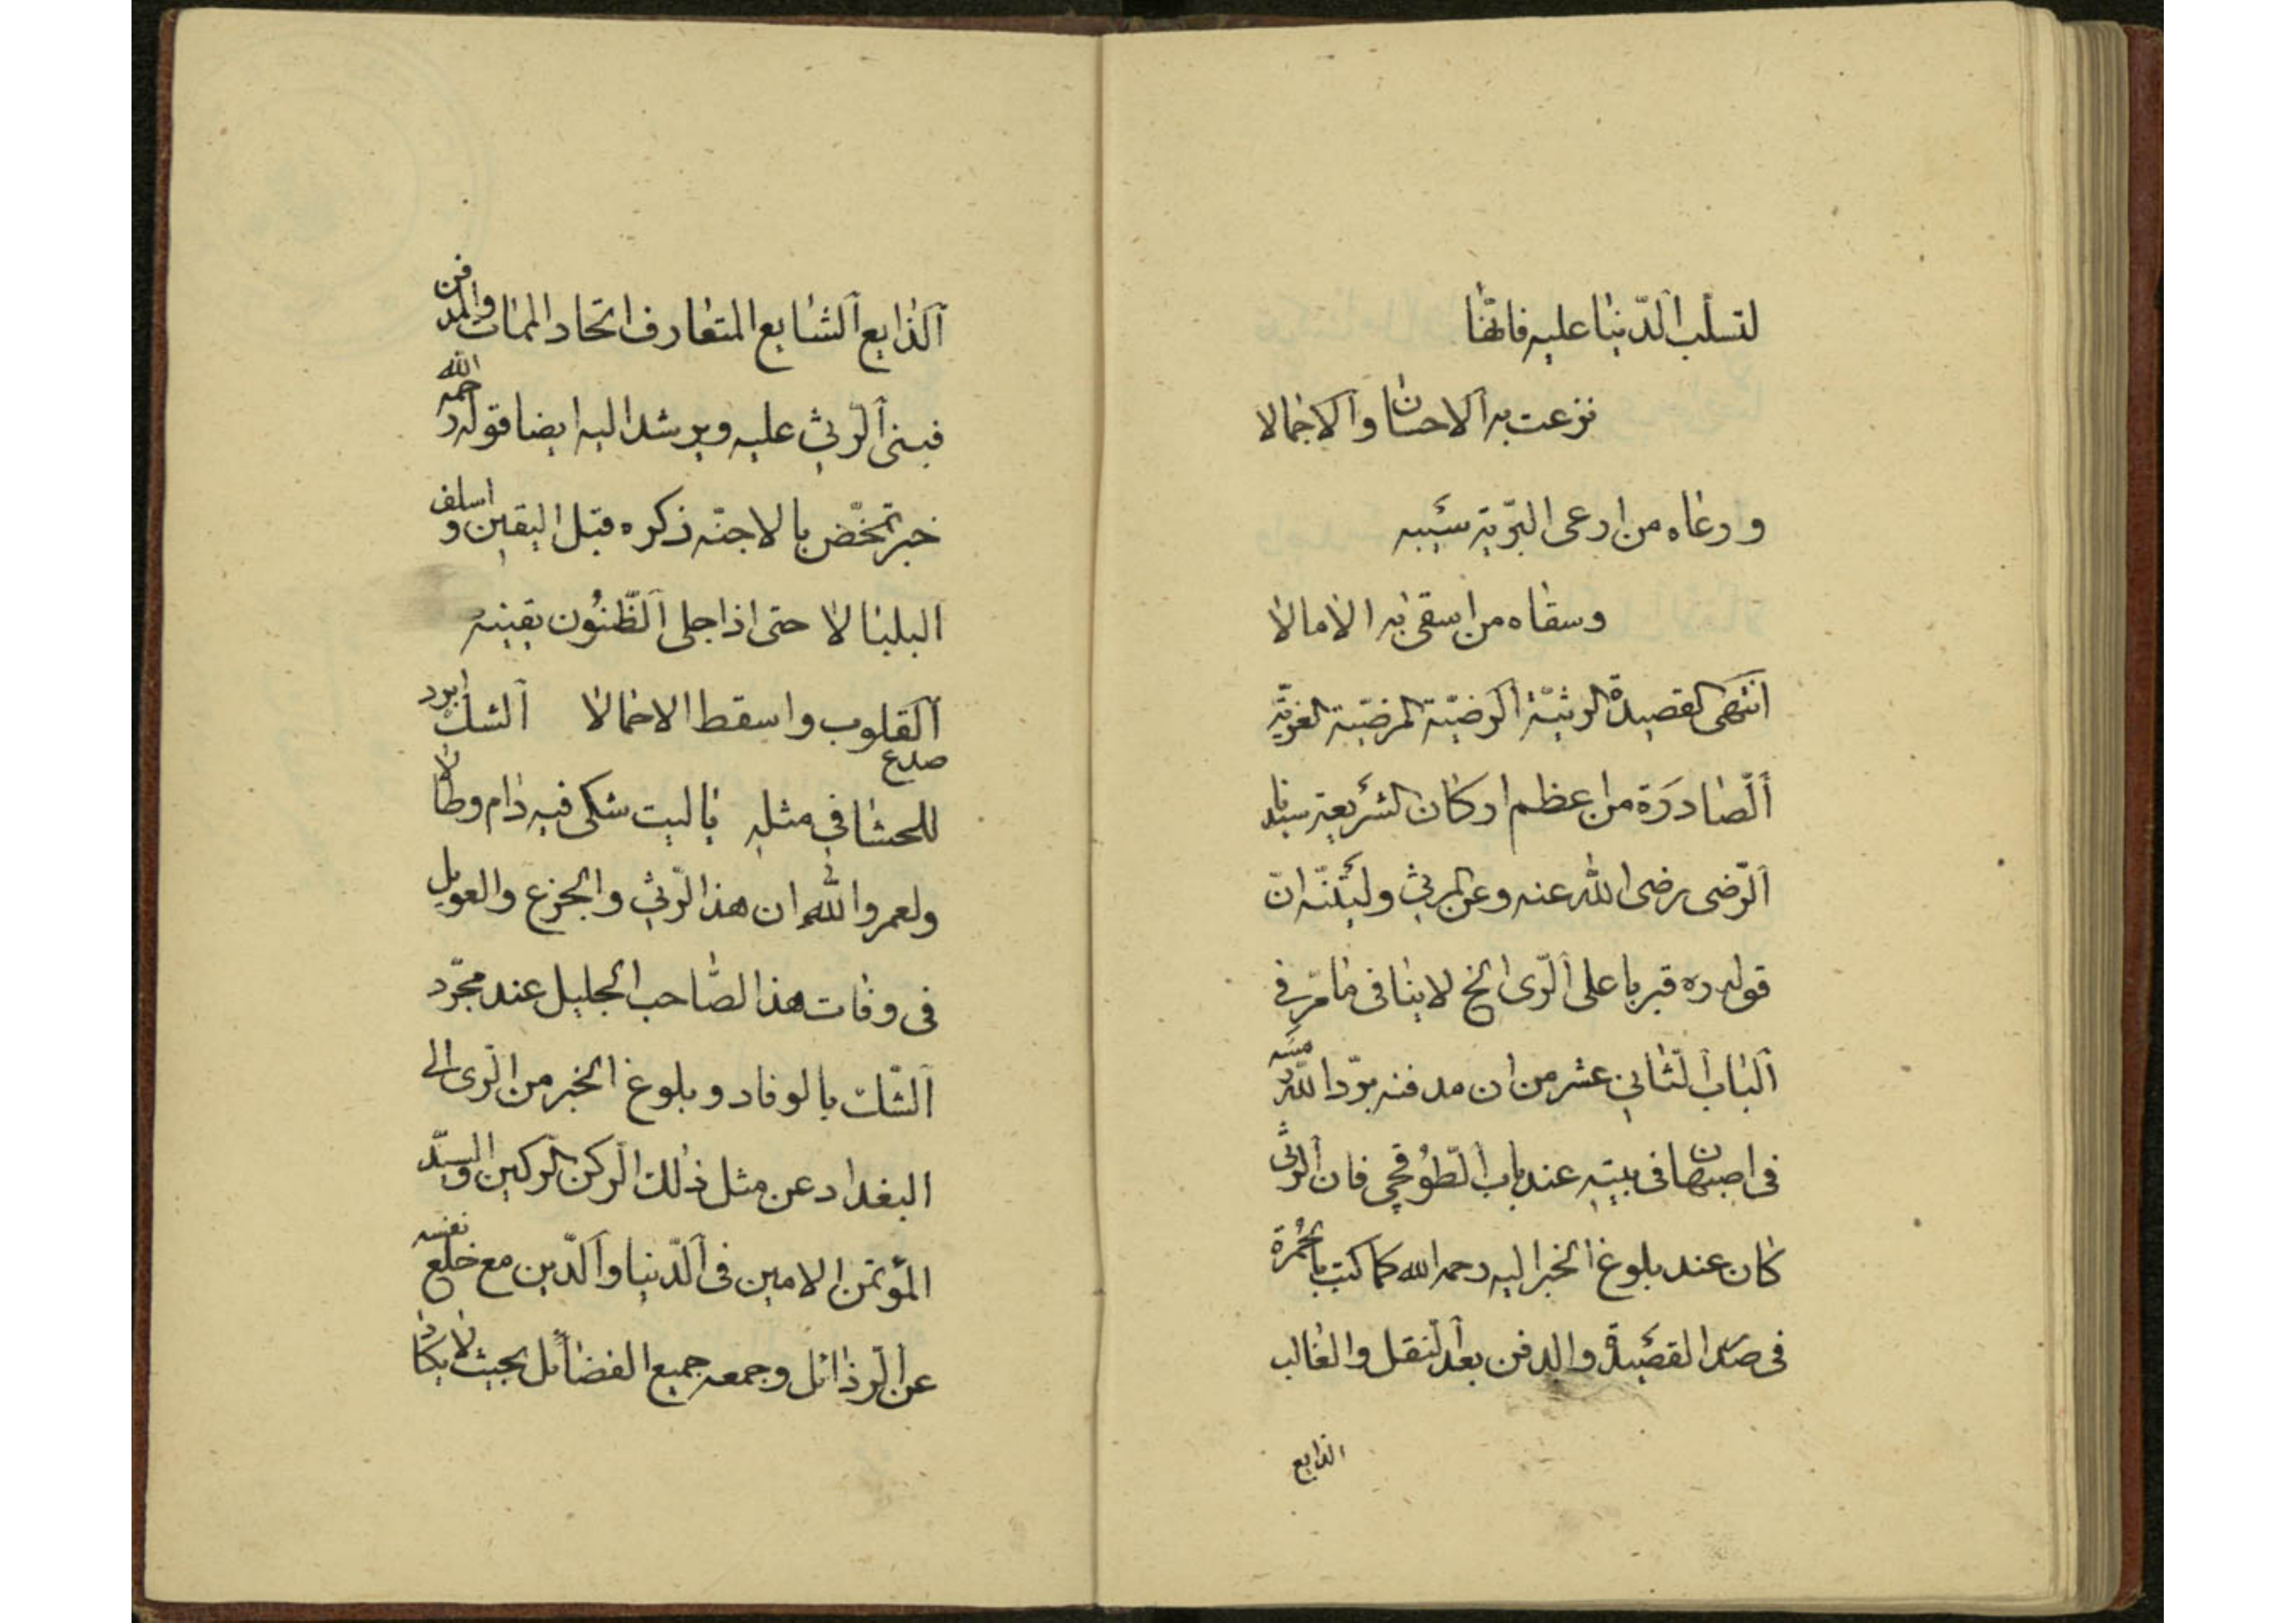 لتسلب الدّنيا عليه فانّها
نزعت به الاحسان والاجمالا
ورعاه من ارعى البريّة سيبه
وسقاه من اسقى به الامالا
انتهى القصيدة الرثيّة الرضيّة المرضيّة الغريّة
الصّادرة من اعظم اركان الشريعة سيدنا
الرّضى رضى الله عنه وعن المرثى وليتنّه انّ
قوله ره قبر باعلى الرّى الخ لا ينافى مامرّ فى
الباب الثّانى عشر من ان مدفنه برّد الله رمسه
فى اصبهان فى بيته عند باب الطّوقچى فان الرثى
كان عند بلوغ الخبر اليه رحمه الله كما كتب بالحُمرة
فى صدر القصيدة والدفن بعد النقل والغالب
الذايع
الذايع الشايع المتعارف اتحاد الممات والمدفن
فبنى الرثى عليه ويرشد اليه ايضا قوله رحمه الله
خبر تمخّض بالاجنّه ذكره قبل اليقين واسلف
البلبالا حتى اذا جلى الظّنُون يقينه
القلوب واسقط الاحمالا الشك ابرد
للحشا فى مثله ياليت شكى فيه دام وطالا
صدع
ولعمرو الله ان هذا الرّثى والجزع والعويل
فى وفات هذا الصّاحب الجليل عند مجرّد
الشّك بالوفاد وبلوغ الخبر من الرّى الى
البغداد عن مثل ذلك الرّكن الرّكين والسيّد
المؤتمن الامين فى الدّنيا والدّين مع خلع نفسه
عن الرّذائل وجمعه جميع الفضائل بحيث لا يكاد